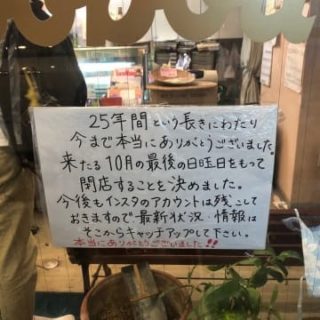 25年間という長きにわたり
今まで本当にありがとうございました。
来たる10月の最後の日曜日をもって
閉店することを決めました。
今後もインスタのアカウントは残こして
おきますので最新状況・情報は
そこからキャッチアップして下さい。
本当にありがとうございました!!